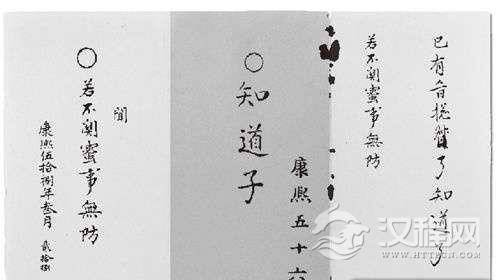 已有旨了知道了
若不關蜜事無防
康熙五十六
○知道子
聞
○若不關蜜事無防
康熙伍拾捌年叁月 貳拾捌
汉程网